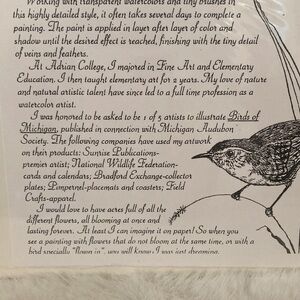 Working with transparent watercolors and tiny brushes in
this highly detailed style, it often takes several days to complete a
painting. The paint is applied in layer after layer of color and
shadow until the desired effect is reached, finishing with the tiny detail
of veins and feathers.
At Adrian College, I majored in Fine Art and Elementary
Education. I then taught elementary art for 2 years. My love of nature
and natural artistic talent have since led to a full time profession as a
watercolor artist.
I was honored to be asked to be 1 of 5 artists to illustrate Birds of
Michigan, published in connection with Michigan Audubon
Society. The following companies have used my artwork
on their products: Sunrise Publications-
premier artist; National Wildlife Federation-
cards and calendars; Bradford Exchange-collector
plates; Pimpernel-placemats and coasters; Field
Crafts-apparel.
I would love to have acres full of all the
different flowers, all blooming at once and
lasting forever. At least I can imagine it on paper! So when you
see a painting with flowers that do not bloom at the same time, or with a
bird specially "flown in", you will know I was just dreaming.